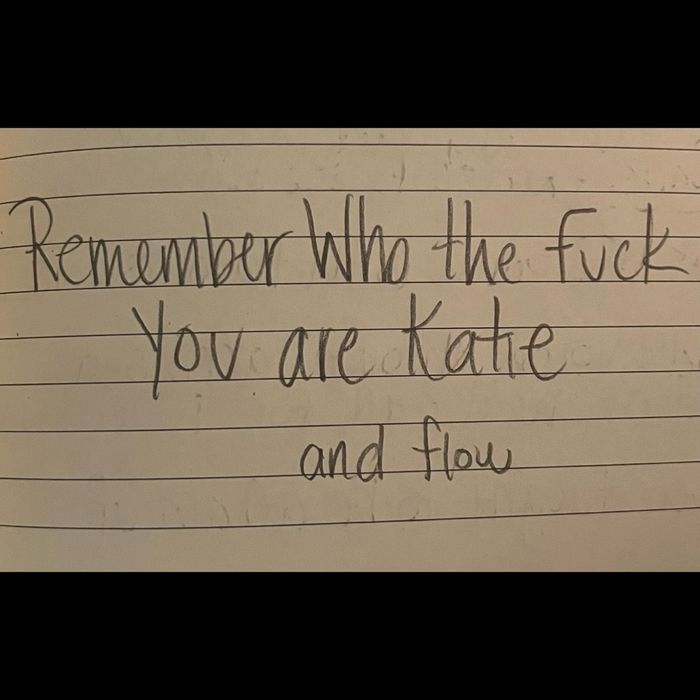 Remember Who the fuck
You are Katie
and flow